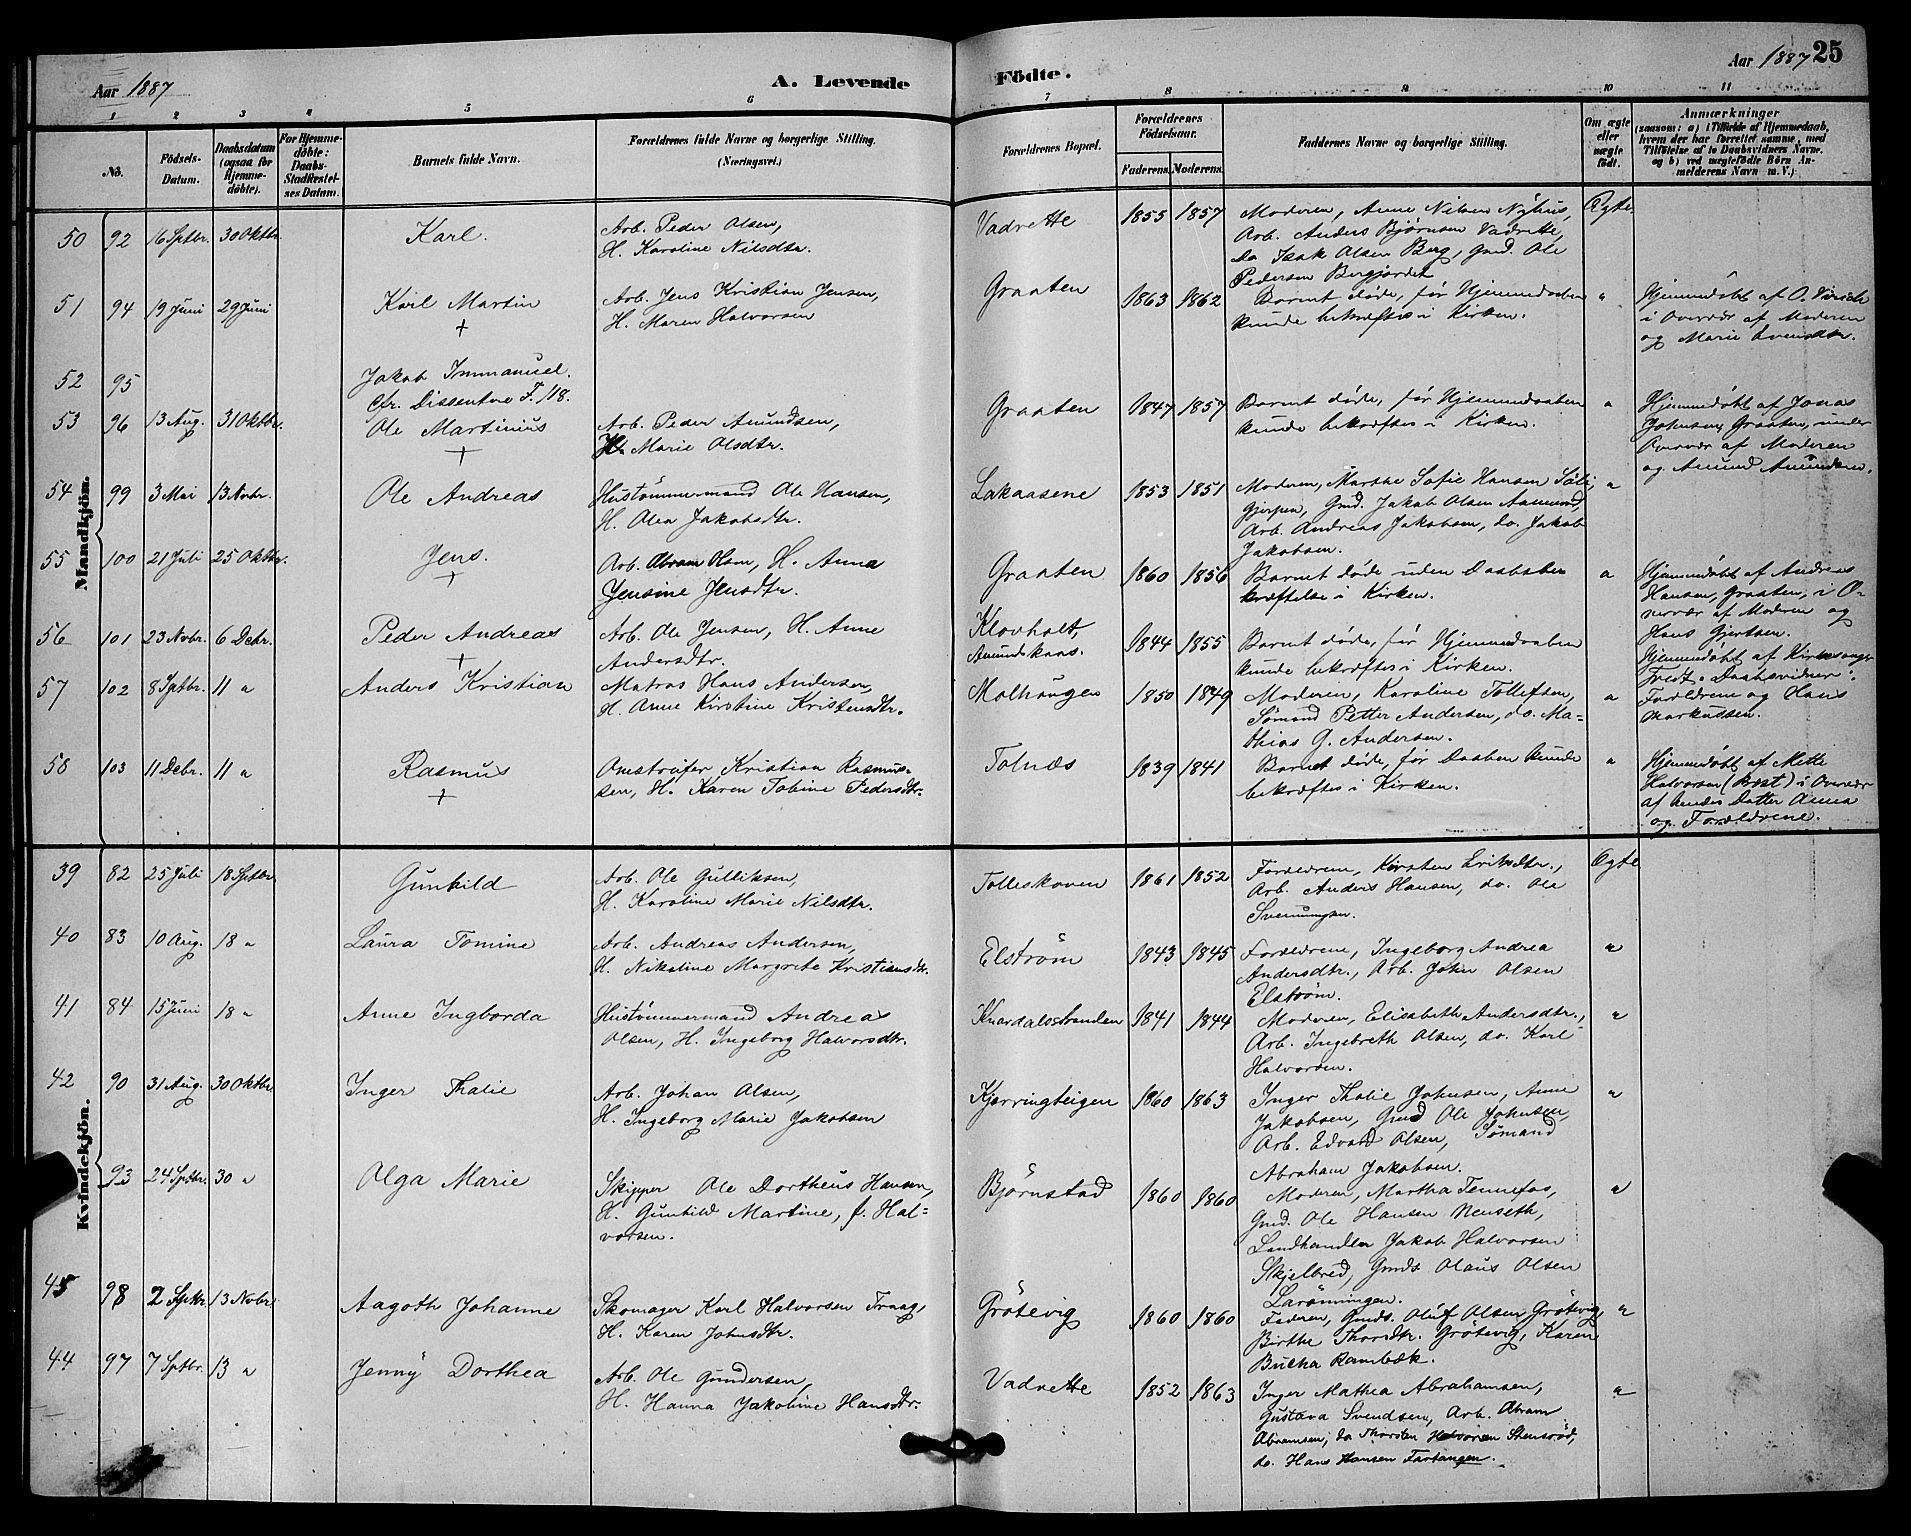 Aar 1887
A. Levende
Födte.
Aar 1887
25
1 2 3 4 5 6 7 8 9 10 11
No.
Födsels-
Datum.
Daabsdatum
(ogsaa for
Hjemme-
döbte).
For Hjemme-
döbte:
Daabs-
Stadfæstel-
ses Datum.
Barnets fulde Navn.
Forældrenes fulde Navne og borgerlige Stilling.
(Næringsvei.)
Forældrenes Bopæl.
Forældrenes
Födselsaar.
Faderens. Moderens.
Faddernes Navne og borgerlige Stilling.
Om ægte
eller
uægte
födt.
Anmærkninger
(saasom: a) i Tilfælde af Hjemmedaab,
hvem der har forrettet samme, med
Tilföielse af to Daabsvidners Navne,
og b) ved uægtefödte Börn An-
melderens Navn m. V.)
Mandkjön.
50 92 16 Sptbr. 30 Oktbr. Karl.
Arb. Peder Olsen,
H. Karoline Nilsdtr.
Vadrette 1855 1857
Moderen, Anne Nilsen Nyhus,
Arb. Anders Bjørnsen Vadrette,
do Isak Olsen Berg, Gmd. Ole
Pedersen Bergjordet
Ægte
51 94 19 Juni 29 Juni Karl Martin
+
Arb. Jens Kristian Jensen,
H. Maren Halvorsen
Graaten 1863 1862
Barnet døde, før Hjemmedaaben
kunde bekræftes i Kirken.
"
Hjemmedøbt af O.
i Overvær af Moderen
og Marie Svendsdtr.
52 95 Jakob Immanuel.
Cfr. Dissentere F. 118.
53 96 13 Aug. 31 Oktbr. Ole Martinius
+
Arb. Peder Amundsen,
H. Marie Olsdtr.
Graaten 1847 1857
Barnet døde, før Hjemmedaaben
kunde bekræftes i Kirken.
"
Hjemmedøbt af Jonas
Johnsen, Graaten, under
Overvær af Moderen
og Amund Amundsen.
54 99 3 Mai 13 Novbr. Ole Andreas
Hustømmermand Ole Hansen,
H. Olea Jakobsdtr.
Lakaasene 1853 1851
Moderen, Marthe Sofie Hansen
Gjerpen, Gmd. Jakob Olsen Aamund,
Arb. Andreas Jakobsen, do. Jakob
Jakobsen.
"
55 100 21 Juli 25 Oktbr. Jens.
+
Arb. Abram Olsen, H. Anna
Jensine Jensdtr.
Graaten 1860 1856
Barnet døde uden Daabsbe-
kræftelse i Kirken.
"
Hjemmedøbt af Andreas
Hansen, Graaten, i O-
vervær af Moderen og
Hans Gjertsen.
56 101 23 Novbr. 6 Debr. Peder Andreas
+
Arb. Ole Jensen, H. Anne
Andersdtr.
Klovholt,
Amundskaas. 1844 1855
Barnet døde, før Hjemmedaaben
kunde bekræftes i Kirken.
Hjemmedøbt af Kirkesanger
Tvedt. Daabsvidner:
Forældrene og Hans
Markussen.
57 102 8 Sptbr. 11 " Anders Kristian
Matros Hans Andersen,
H. Anne Kirstine Kristensdtr.
Molhaugen 1850 1849
Moderen, Karoline Tollefsen,
Sømand Petter Andersen, do. Ma-
thias G. Andersen.
"
58 103 11 Debr. 11 " Rasmus
+
Omstreifer Kristian Rasmus-
sen, H. Karen Tobine Pedersdtr.
Tolnæs 1839 1841
Barnet døde, før Daaben kunde
bekræftes i Kirken.
"
Hjemmedøbt af Mette
Halvorsen (Brekt) i Overvær
af hendes Datter Anna
og Forældrene.
Kvindekjön.
39 82 25 Juli 18 Sptbr. Gunhild
Arb. Ole Gulliksen,
H. Karoline Marie Nilsdtr.
Tolleskoven 1861 1852
Forældrene, Kirsten Eriksdtr.,
Arb. Anders Hansen, do. Ole
Svenungsen.
Ægte
40 83 10 Aug. 18 " Laura Tomine
Arb. Andreas Andersen,
H. Nikoline Margrete Kristiansdtr.
Elstrøm 1843 1845
Forældrene, Ingeborg Andrea
Andersdtr., Arb. John Olsen
Elstrøm.
"
41 84 15 Juni 18 " Anne Ingborda
Hustømmermand Andreas
Olsen, H. Ingeborg Halvorsdtr.
Knardalsstranden 1841 1844
Moderen, Elisabeth Andersdtr.,
Arb. Ingebreth Olsen, do. Karl
Halvorsen.
"
42 90 31 Aug. 30 Oktbr. Inger Thalie
Arb. Johan Olsen,
H. Ingeborg Marie Jakobsen
Kjerringteigen 1860 1863
Inger Thalie Johnsen, Anne
Jakobsen, Gmd Ole Johnsen,
Arb. Edvard Olsen, Sømand
Abraham Jakobsen.
"
93 24 Sptbr. 30 " Olga Marie
Skipper Ole Dortheus Hansen,
H. Gunhild Martine, f. Hal-
vorsen.
Bjørnstad 1860 1860
Moderen, Martha Tennefos,
Gmd. Ole Hansen Menseth,
Landhandler Jakob Halvorsen
Skjelbred, Gmds. Olaus Olsen
Larønningen.
"
45 98 2 Sptbr. 13 Novbr. Aagoth Johanne
Skomager Karl Halvorsen Traag,
H. Karen Johnsdtr.
Grøtevig 1860 1860
Faderen, Gmds. Oluf Olsen Grøtevig,
Birthe Thorsdtr. Grøtevig, Karen
Bucha Rambæk.
"
44 97 7 Sptbr. 13 " Jenny Dorthea
Arb. Ole Gundersen,
H. Hanna Jakobine Hansdtr.
Vadrette 1852 1863
Inger Mathea Abrahamsen,
Gustava Svendsen, Arb. Abram
Abramsen, do Thorsten Halvorsen Stensrød,
do. Hans Hansen Fartangen.
"